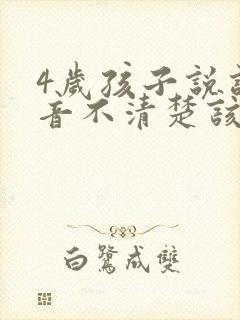 4歲孩子說話
音不清楚該
白鷺成雙